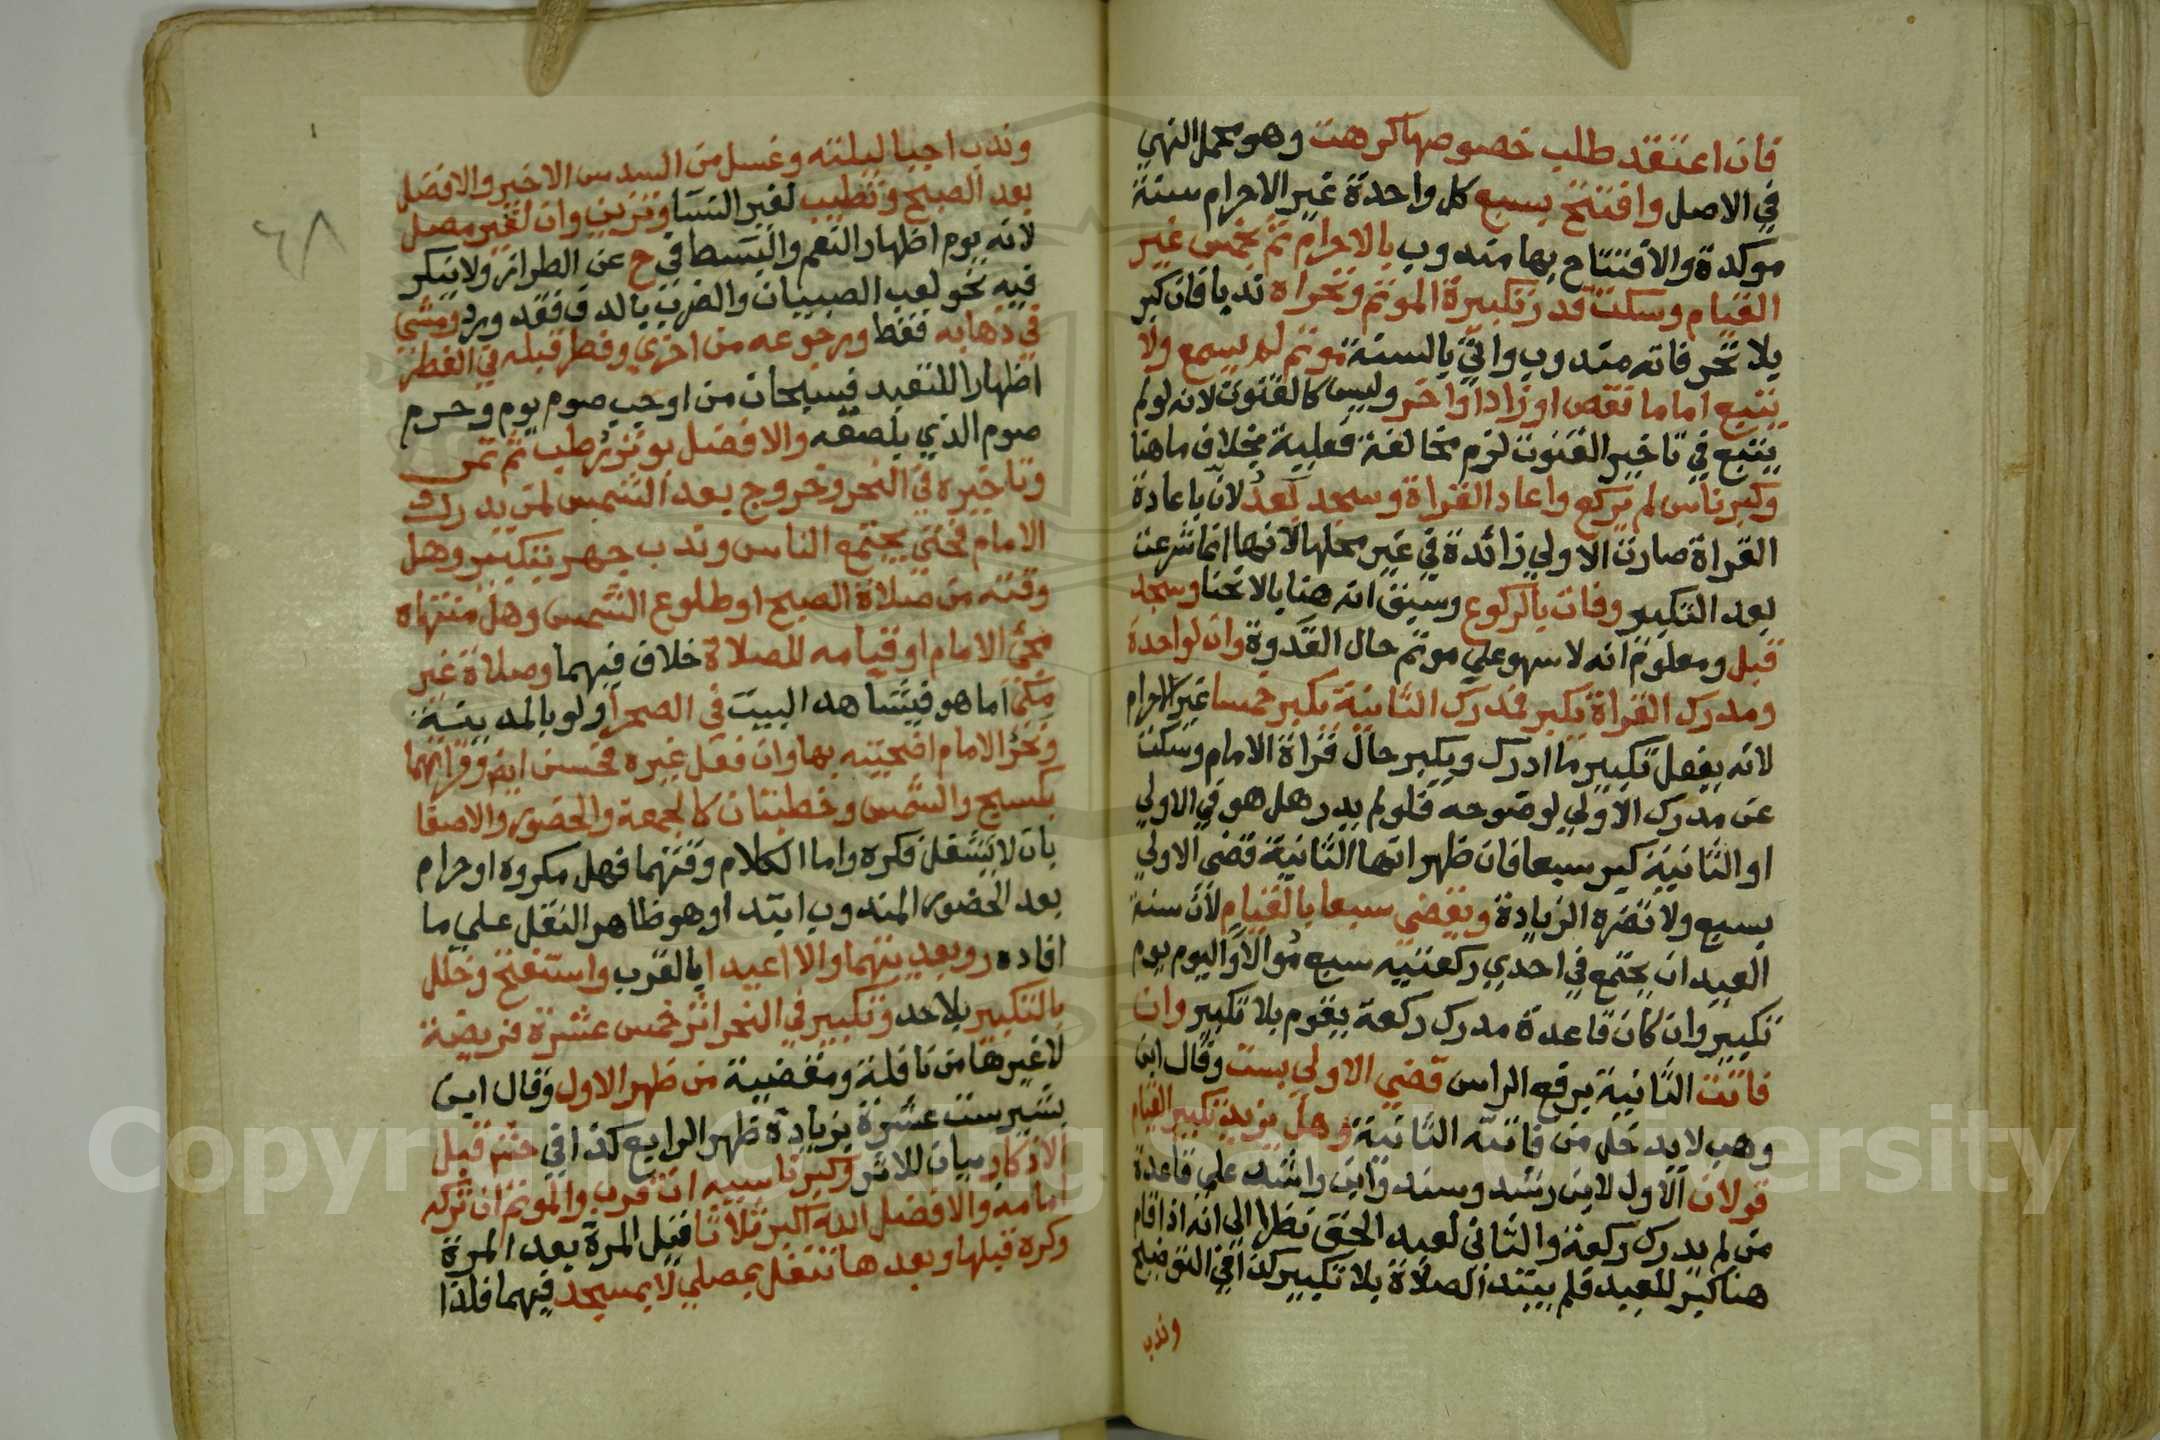 فان اعتقد طلب خصوصها كرهت وهو محمل النهي
في الاصل وافتتح بسبع كل واحدة غير الاحرام سنة
موكدة والافتتاح بها مندوب بالاحرام ثم بخمس غير
القيام وسكت قدر تكبيرة الموتم وتحراه ندبا فان كبر
بلا تحر فاته مندوب واتي بالسنة موتم لم يسمع ولا
يتبع اماما نقص او زاد او اخر وليس كالقنوت لانه لو لم
يتبع في تاخير القنوت لزم مخالفة فعلية بخلاف ما هنا
وكبر ناس لم يركع واعاد القراة وسجد بعد لان باعادة
القراة صارت الاولي زائدة في غير محلها لانها انما شرعت
بعد التكبير وفات بالركوع وسبق انه هنا بالانحنا وسجد
قبل ومعلوم انه لا سهو علي موتم حال القدوة وان لواحدة
ومدرك القراة يكبر فمدرك الثانية يكبر خمسا غير الاحرام
لانه يفعل تكبير ما ادرك ويكبر حال قراة الامام وسكت
عن مدرك الاولي لوضوحه فلو لم يدر هل هو في الاولي
او الثانية كبر سبعا فان ظهر انها الثانية قضي الاولي
بسبع ولا تضره الزيادة ويقضي سبعا بالقيام لان سنة
العيد ان يجتمع في احدي ركعتيه سبع مُوالاو اليوم يوم
تكبير وان كان قاعدة مدرك ركعة يقوم بلا تكبير وان
فاتت الثانية برفع الراس قضي الاولي بست وقال ابن
وهب لا يدخل من فاتته الثانية وهل يزيد تكبير القيام
قولان الاول لابن رشد وسند وابن راشد علي قاعدة
من لم يدرك ركعة والثاني لعبد الحق نظرا الي انه اذا قام
هنا كبر للعيد فلم يبتد الصلاة بلا تكبير كذا في التوضيح
وندب
٦٨
وندب احيا ليلته وغسل من السدس الاخير والافضل
بعد الصبح وتطيب لغير النسا وتزين وان لغير مصل
لانه يوم اظهار النعم والبسط في ح عن الطراز ولا ينكر
فيه نحو لعب الصبيان والضرب بالدف فقد ورد ومشي
في ذهابه فقط ورجوعه من اخري وفطر قبله في الفطر
اظهارا للتعبد فسبحان من اوجب صوم يوم وحرم
صوم الذي يلصقه والافضل بوتر رطب ثم تمر
وتاخيره في النحر وخروج بعد الشمس لمن يدرك
الامام فحتي يجتمع الناس وندب جهر بتكبير وهل
وقته من صلاة الصبح او طلوع الشمس وهل منتهاه
مجئ الامام او قيامه للصلاة خلاف فيهما وصلاة غير
مكي اما هو فيشاهد البيت في الصحرا ولو بالمدينة
ونحر الامام اضحيته بها وان فعل غيره فحسن ايض وقراتهما
بكسبح والشمس وخطبتان كالجمعة والحضور والاصغا
بان لا يشغل فكره واما الكلام وقتهما فهل مكروه او حرام
بعد الحضور المندوب ابتدا وهو ظاهر النقل علي ما
افاده ر وبعديتهما والا اعيدا بالقرب واستفتح وخلل
بالتكبير بلا حد وتكبير في النحر اثر خمس عشرة فريضة
لا غيرها من نافلة ومقضية من ظهر الاول وقال ابن
بشير ست عشرة بزيادة ظهر الرابع كذا في حش قبل
الاذكار بيان للاثر وكبر ناسيه ان قرب والموتم ان تركه
امامه والافضل الله اكبر ثلاثا فقبل المرة بعد المرة
وكره قبلها وبعدها تنفل بمصلي لا بمسجد فيهما فلذا